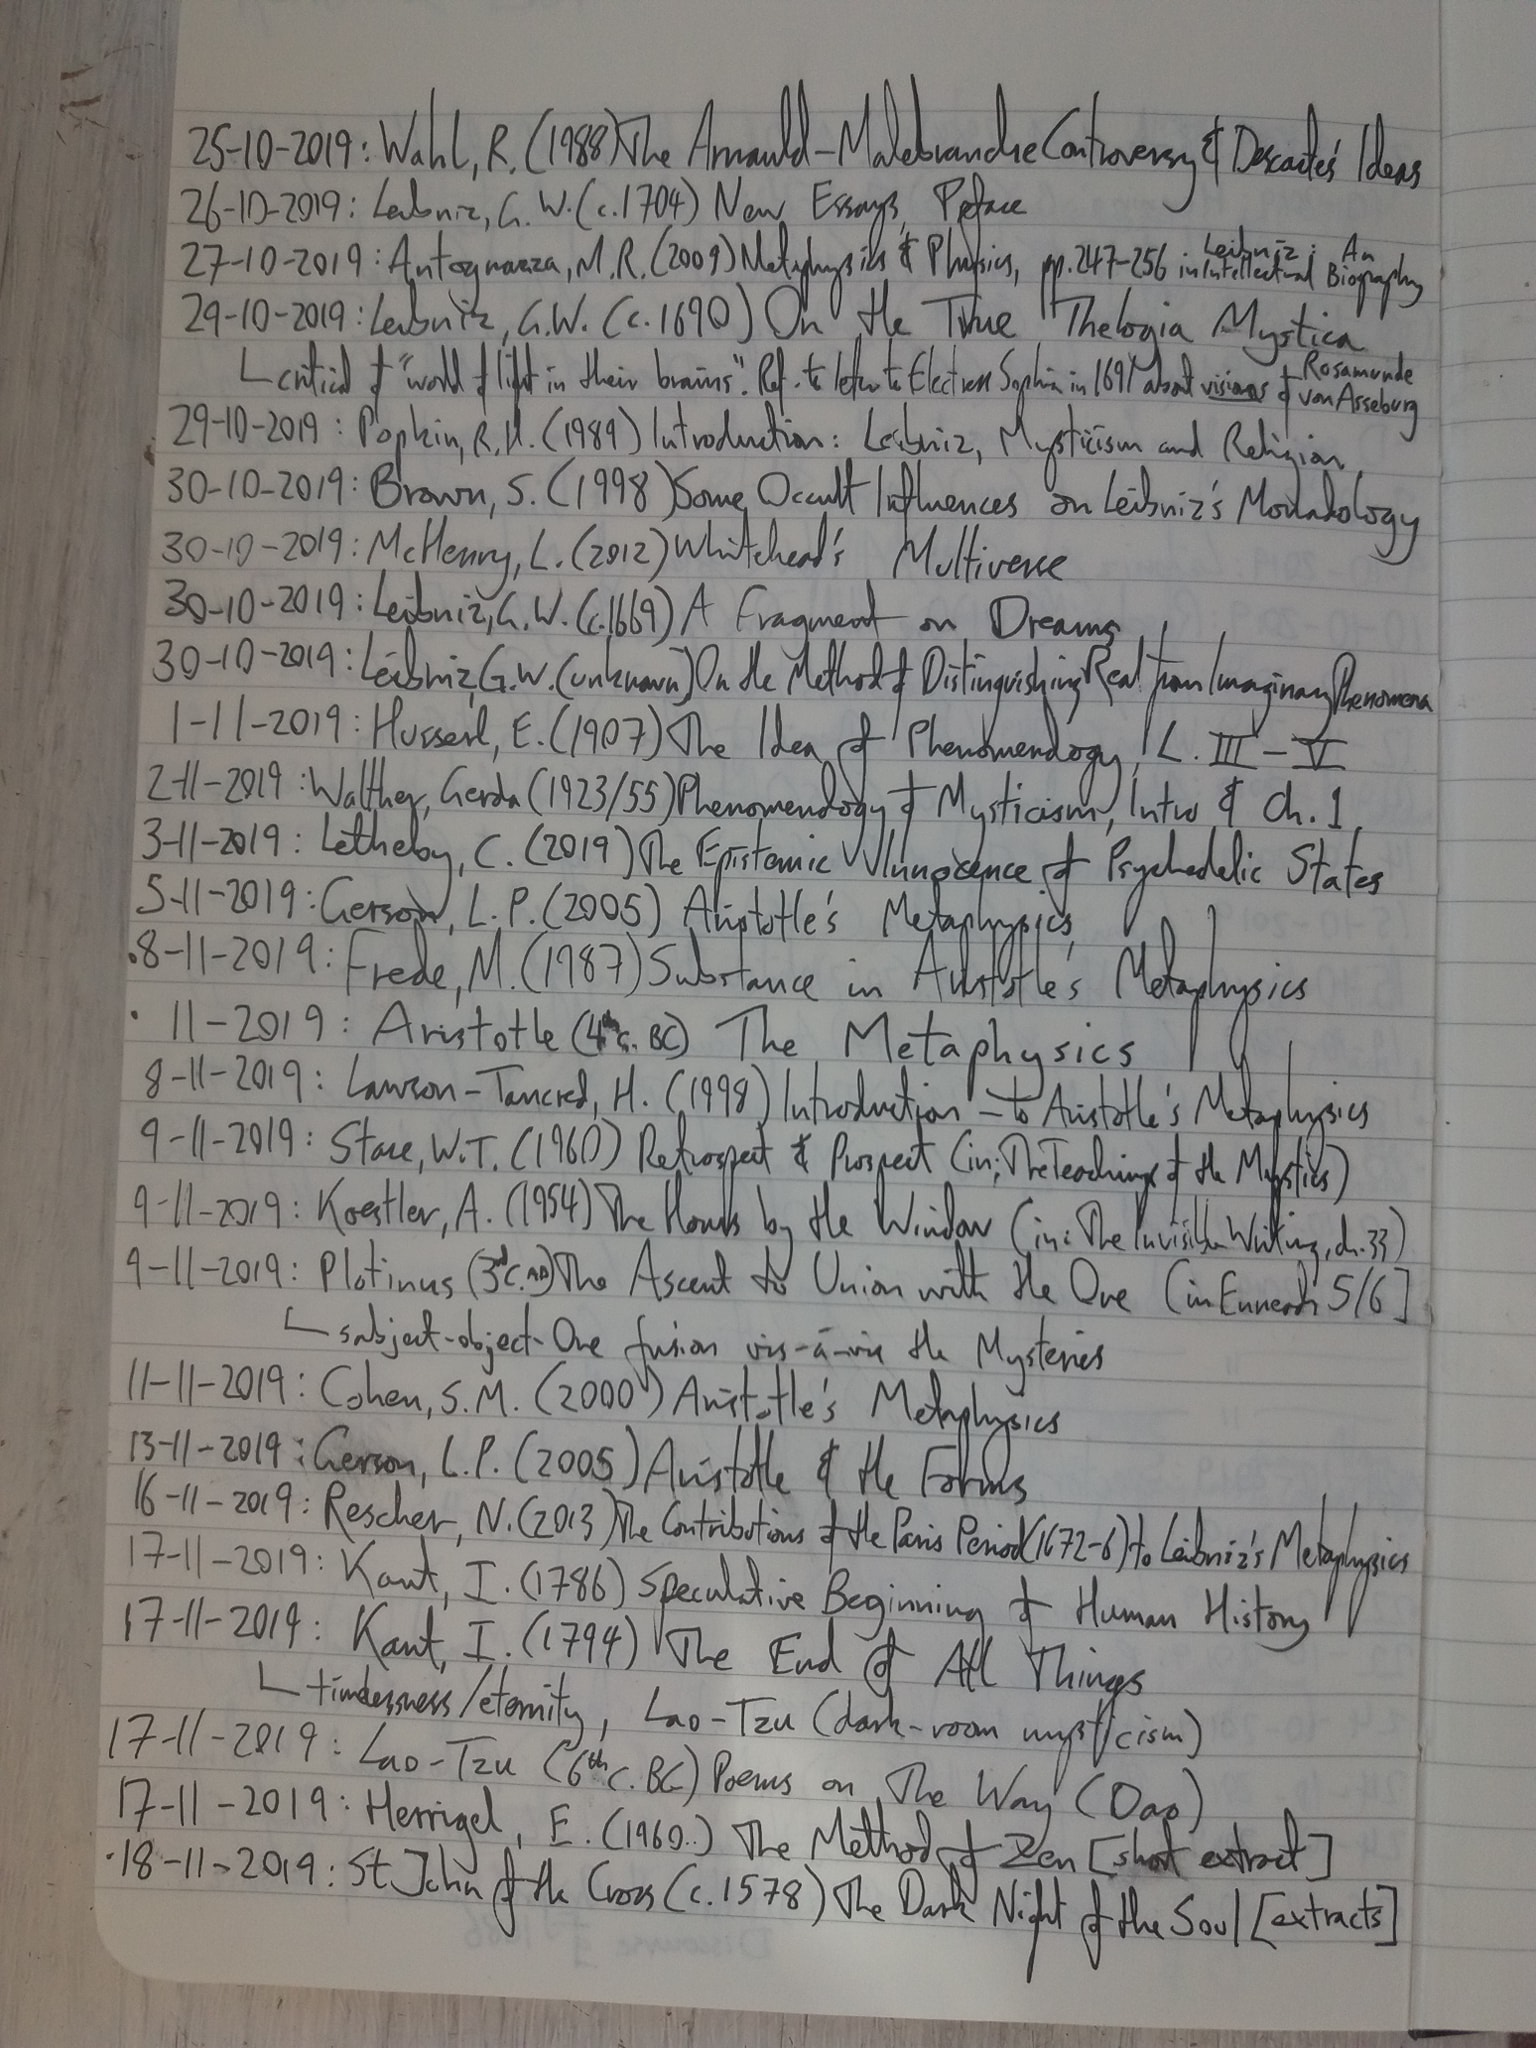 25-10-2019: Wahl, R. (1988) The Arnauld-Malebranche Controversy & Descartes' Ideas
26-10-2019: Leibniz, G.W. (c.1704) New Essays, Preface
27-10-2019: Antognazza, M.R. (2009) Metaphysics & Physics, pp.247-256 in Leibniz: An Intellectual Biography
29-10-2019: Leibniz, G.W. (c.1690) On the True Thelogia Mystica
└ critical of "world of light in their brains". Ref. to letter to Electress Sophia in 1691 about visions of Rosamunde von Asseburg
29-10-2019: Popkin, R.H. (1989) Introduction: Leibniz, Mysticism and Religion
30-10-2019: Brown, S. (1998) Some Occult Influences on Leibniz's Monadology
30-10-2019: McHenry, L. (2012) Whitehead's Multiverse
30-10-2019: Leibniz, G.W. (c.1669) A Fragment on Dreams
30-10-2019: Leibniz, G.W. (unknown) On the Method of Distinguishing Real from Imaginary Phenomena
1-11-2019: Husserl, E. (1907) The Idea of Phenomenology, L. III-V
2-11-2019: Walther, Gerda (1923/55) Phenomenology of Mysticism, Intro & Ch. 1
3-11-2019: Letheby, C. (2019) The Epistemic Innocence of Psychedelic States
5-11-2019: Gerson, L.P. (2005) Aristotle's Metaphysics
·8-11-2019: Frede, M. (1987) Substance in Aristotle's Metaphysics
· 11-2019: Aristotle (4th c. BC) The Metaphysics
8-11-2019: Lawson-Tancred, H. (1998) Introduction - to Aristotle's Metaphysics
9-11-2019: Stace, W.T. (1960) Retrospect & Prospect (in: The Teachings of the Mystics)
9-11-2019: Koestler, A. (1954) The Hours by the Window (in: The Invisible Writing, ch. 33)
9-11-2019: Plotinus (3rd C. AD) The Ascent to Union with the One (in Enneads 5/6]
└ subject-object-One fusion vis-à-vis the Mysteries
11-11-2019: Cohen, S.M. (2000) Aristotle's Metaphysics
13-11-2019: Gerson, L.P. (2005) Aristotle & the Forms
16-11-2019: Rescher, N. (2013) The Contributions of the Paris Period (1672-6) to Leibniz's Metaphysics
17-11-2019: Kant, I. (1786) Speculative Beginning of Human History
17-11-2019: Kant, I. (1794) The End of All Things
└ timelessness/eternity, Lao-Tzu (dark-room mysticism)
17-11-2019: Lao-Tzu (6th c. BC) Poems on The Way (Dao)
17-11-2019: Herrigel, E. (1960..) The Method of Zen [short extract]
·18-11-2019: St John of the Cross (c.1578) The Dark Night of the Soul [extracts]